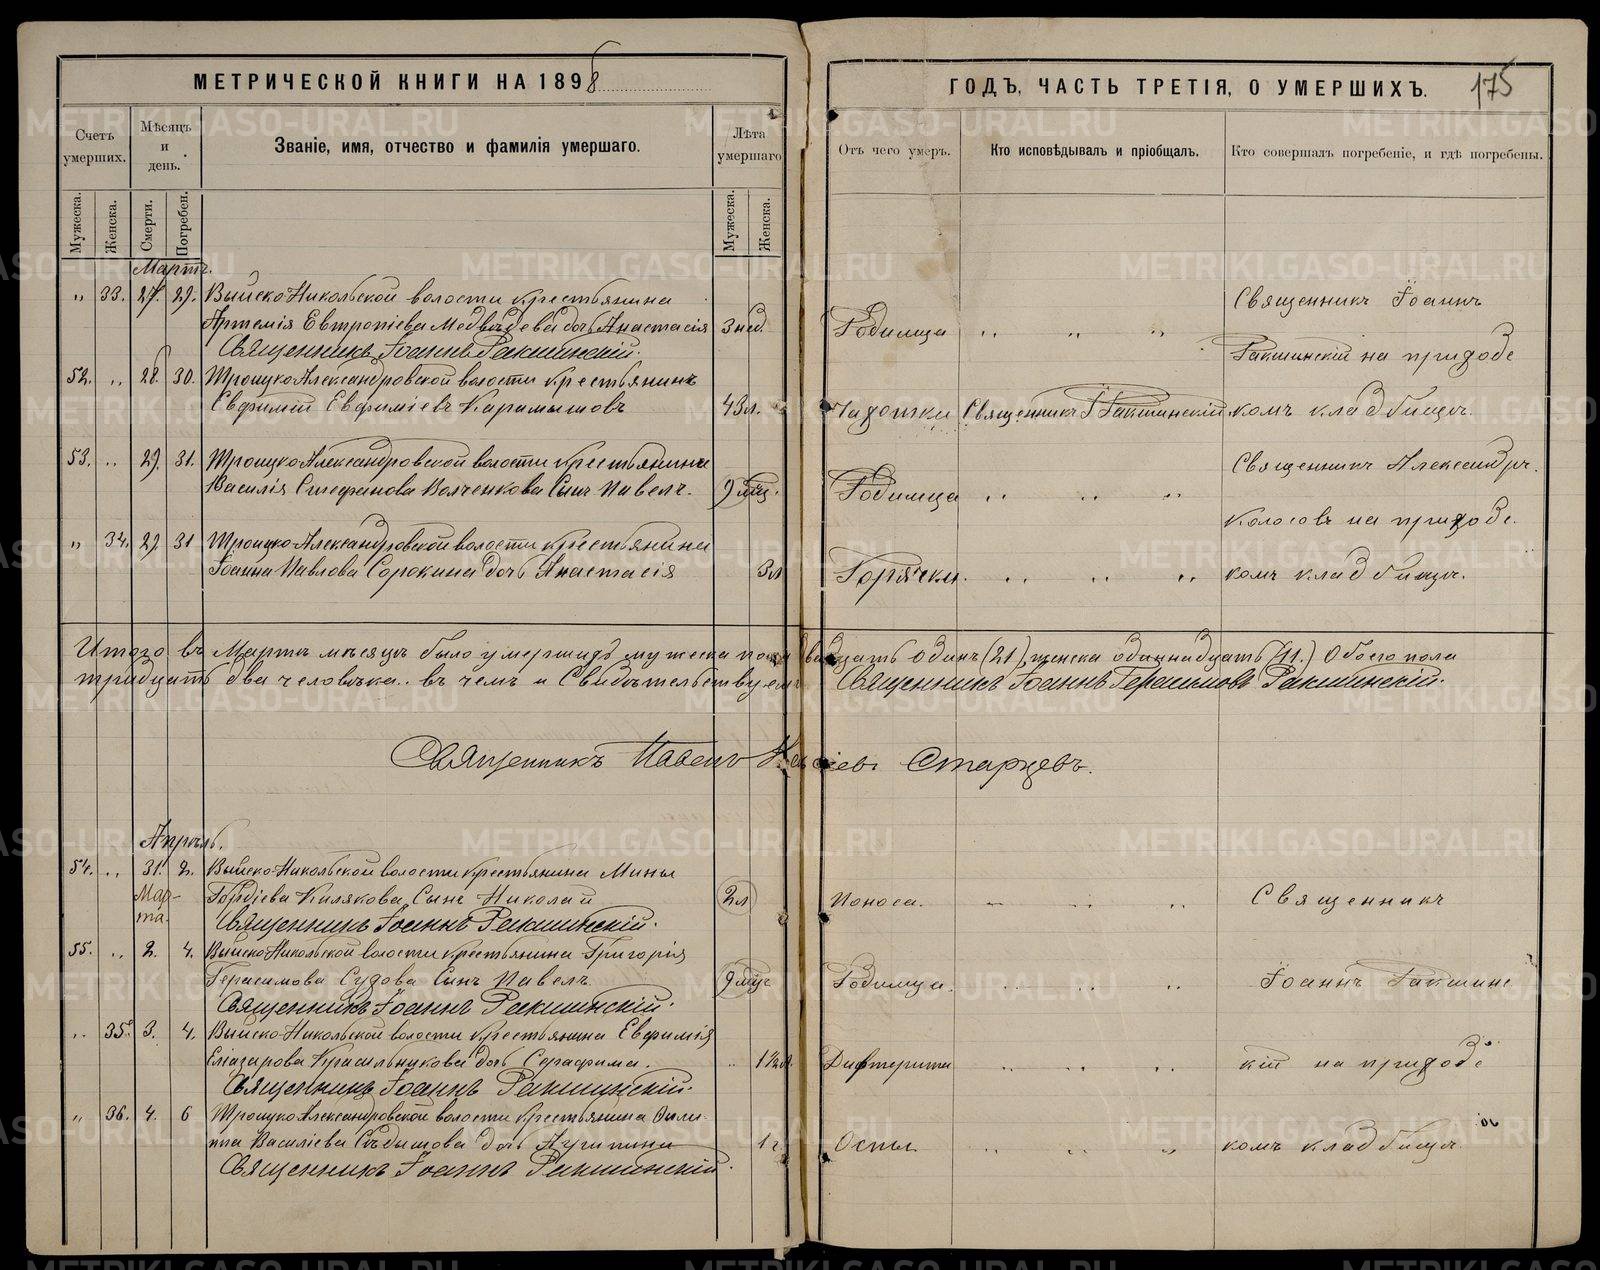 МЕТРИЧЕСКОЙ КНИГИ НА 1898
ГОДЪ, ЧАСТЬ ТРЕТІЯ, О УМЕРШИХЪ.
175
Счетъ умершихъ.
Мѣсяцъ и день.
Званіе, имя, отчество и фамилія умершаго.
Лѣта умершаго
Отъ чего умеръ.
Кто исповѣдывалъ и пріобщалъ.
Кто совершалъ погребеніе, и гдѣ погребены.
Мужеска.
Женска.
Смерти.
Погребен.
Мужеска.
Женска.
Мартъ.
„ 33. 27. 29. Выйско-Никольской волости крестьянина
Артемія Евтропіева Медвѣдева дочь Анастасія 3 нед. Родимца „ „ „
Священникъ Іоаннъ Ракшинскій.
Священникъ Іоаннъ
Ракшинскій на приход
52. „ 28. 30. Троицко-Александровской волости крестьянинъ
Евфимій Евфиміевъ Карамышовъ 43 л. Чахотки Священникъ І Ракшинскій комъ кладбищѣ.
53. „ 29. 31. Троицко-Александровской волости крестьянина
Василія Стефанова Волченкова сынъ Павелъ. 9 мѣц. Родимца „ „ „
Священникъ Александръ
Колосовъ на приходс
„ 34. 29. 31 Троицко-Александровской волости крестьянина
Іоанна Павлова Сорокина дочь Анастасія 3 л Горячки. „ „ „ комъ кладбищѣ.
Итого въ Мартѣ мѣсяцѣ было умершихъ мужеска пола двадцать одинъ (21), женска одиннадцать (11.) Обоего пола
тридцать два человѣка. въ чемъ и свидѣтельствуемъ Священникъ Іоаннъ Герасимовъ Ракшинскій.
Священникъ Павелъ Старцевъ.
Апрѣль.
54. „ 31. 2. Выйско-Никольской волости крестьянина Мины
Марта. Гордіева Килякова сынъ Николай 2 л Поноса. „ „ „ Священникъ
Священникъ Іоаннъ Ракшинскій.
55. „ 2. 4. Выйско-Никольской волости крестьянина Григорія
Герасимова Судова сынъ Павелъ 9 мѣц Родимца. „ „ „ Іоаннъ Ракшинс
Священникъ Іоаннъ Ракшинскій.
„ 35. 3. 4. Выйско-Никольской волости крестьянина Евфимія
Еліазарова Красильникова дочь Серафима. „ 1½ л. Дифтерита „ „ „ кій на приходс
Священникъ Іоаннъ Ракшинскій.
„ 36. 4. 6 Троицко-Александровской волости крестьянина Фили-
ппа Василіева Сѣдышова дочь Агрипина 1 г. Оспы „ „ „ комъ кладбищѣ.
Священникъ Іоаннъ Ракшинскій.
METRIKI.GASO-URAL.RU